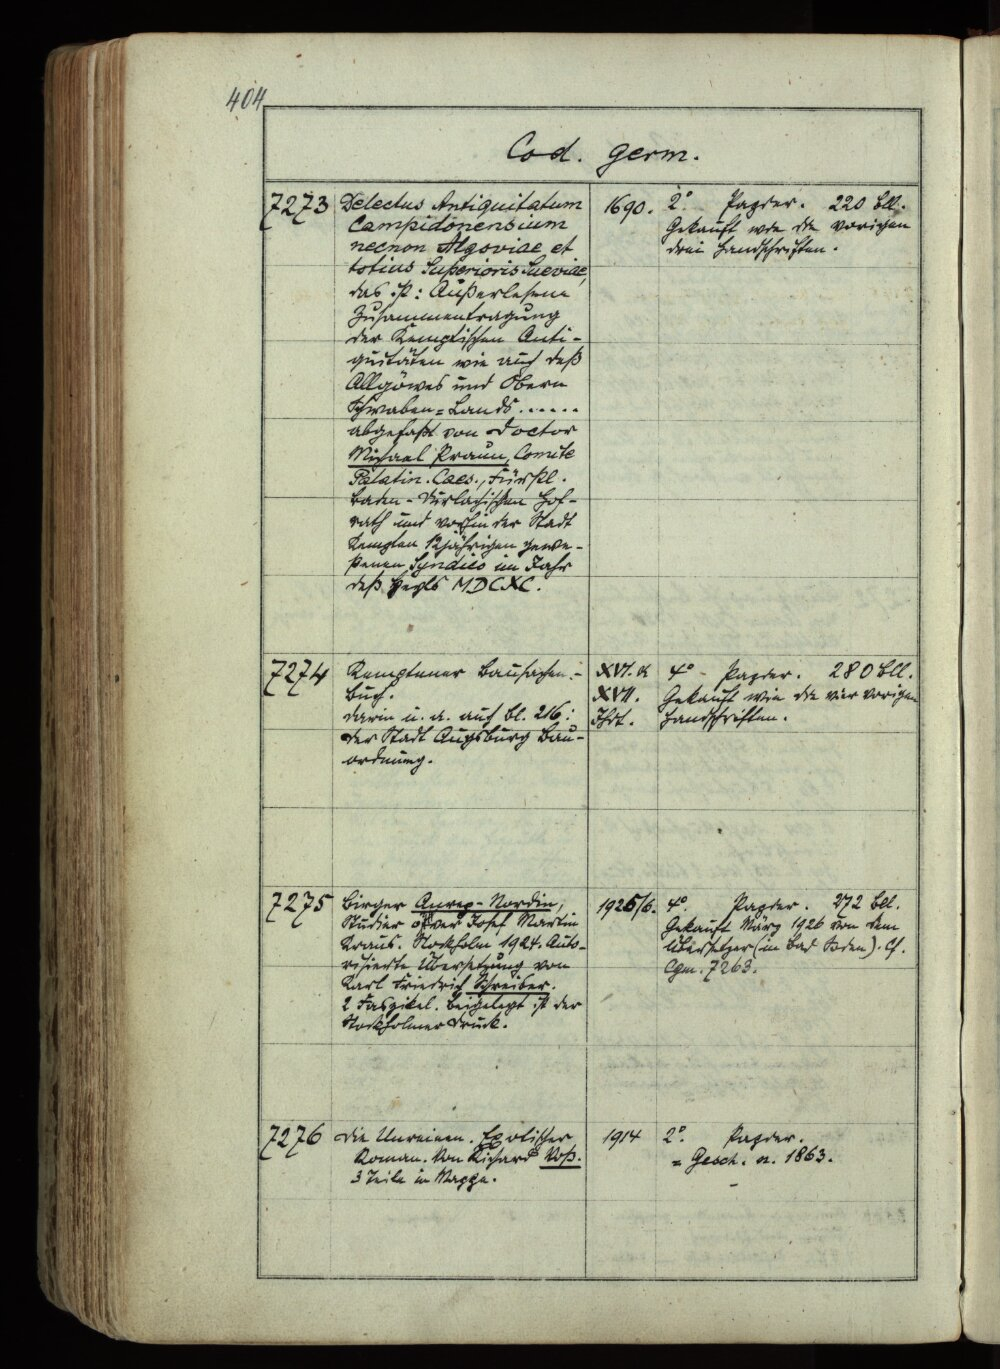 404
Cod. germ.
7273 Delectus Antiquitatum
Campidonensium
necnon Algoviae et
totius Superioris Sueviae,
das ist: Außerlesene
Zusammentragung
der Kemptischen Anti-
quitäten wie auch deß
Allgöwes und Obern
Schwaben=Lands......
abgefaßt von Doctor
Michael Praun, Comite
Palatin. Caes., Fürstl.
Baden-Durlachischen Hof-
rath und vorhin der Stadt
Kempten 12jährigen gewe-
ßenen Syndico im Jahr
deß Heyls MDCXC.
1690.
2° Papier. 220 Bll.
Gekauft wie die vorigen
drei Handschriften.
7274 Kemptener Bausachen-
buch.
Darin u. a. auf Bl. 216:
Der Stadt Augsburg Bau-
ordnung.
XVI. u
XVII.
Jhdt.
4° Papier. 280 Bll.
Gekauft wie die vier vorigen
Handschriften.
7275 Birger Anrep-Nordin,
Studier över Josef Martin
Kraus. Stockholm 1924. Auto-
risierte Übersetzung von
Karl Friedrich Schreiber.
2 Faszikel. Beigelegt ist der
Stockholmer Druck.
1925/6.
4° Papier. 272 Bll.
Gekauft März 1926 von dem
Übersetzer (in Bad Soden). Cf.
Cgm. 7263.
7276 Die Unreinen. Exotischer
Roman. Von Richard Voß.
3 Teile in Mappe.
1914
2°. Papier.
= Gesch. n. 1863.